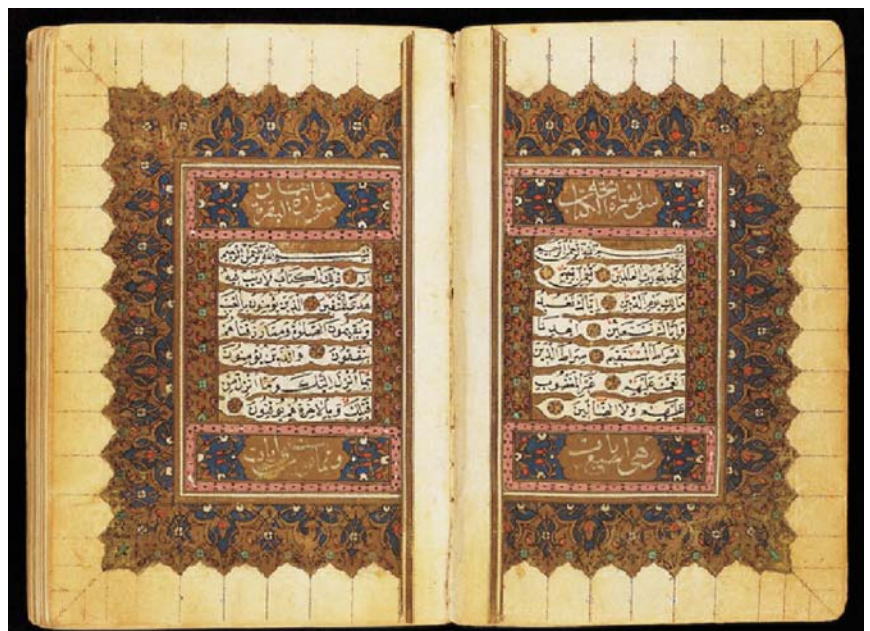 سورة فاتحة الكتاب
بسم الله الرحمن الرحيم
الحمد لله رب العالمين الرحمن الرحيم
مالك يوم الدين اياك نعبد
واياك نستعين اهدنا
الصراط المستقيم صراط الذين
انعمت عليهم غير المغضوب
عليهم ولا الضالين
وهي
سورة البقرة
بسم الله الرحمن الرحيم
الم ذلك الكتاب لا ريب فيه
هدى للمتقين الذين يؤمنون بالغيب
ويقيمون الصلوة ومما رزقناهم
ينفقون والذين يؤمنون
بما انزل اليك وما انزل من
قبلك وبالاخرة هم يوقنون
ايات